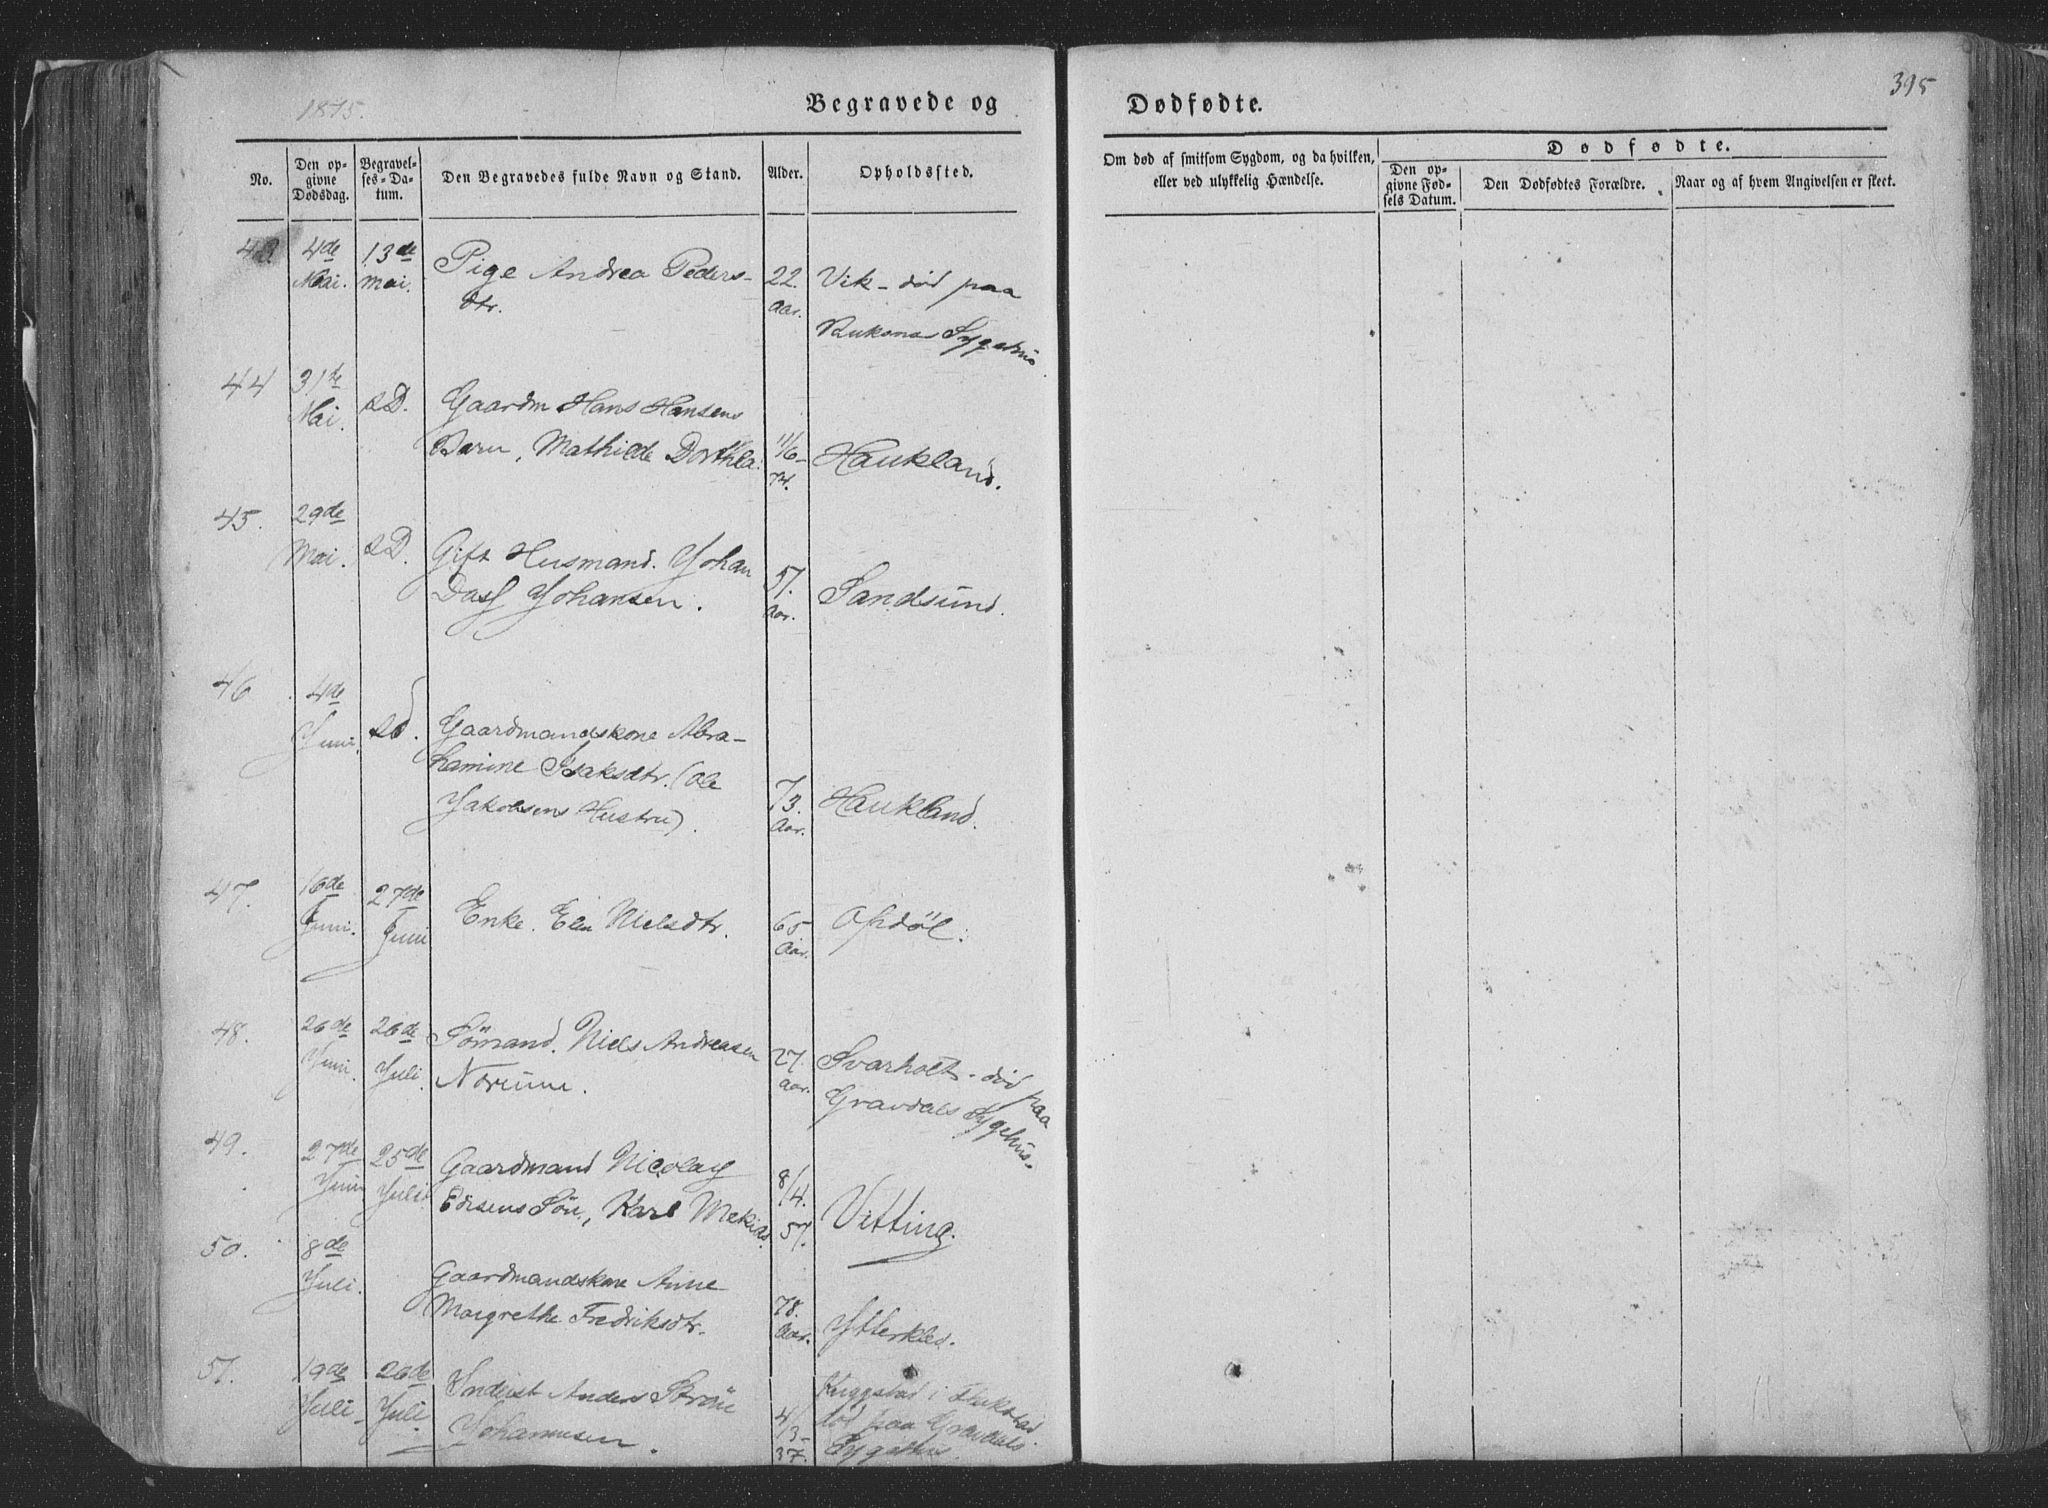 395
1875.
Begravede og Dødfødte.
No.
Den opgivne Dødsdag.
Begravelses-Datum.
Den Begravedes fulde Navn og Stand.
Alder.
Opholdssted.
Om død af smitsom Sygdom, og da hvilken,
eller ved ulykkelig Hændelse.
Dødfødte.
Den opgivne Fødsels Datum.
Den Dødfødtes Forældre.
Naar og af hvem Angivelsen er skeet.
43 4de Mai. 13de Mai. Pige Andrea Peders-
dtr. 22 Aar. Vik - død paa
Sygehus
44 31te Mai. s.D. Gaardm Hans Hansens
Barn, Mathilde Dorthea. 11/6-74. Haukland.
45. 29de Mai. s.D. Gift Husmand. Johan
Dass Johansen. 57. Aar. Sandsund.
46 4de Juni. s.d. Gaardmandskone Abra-
hamine Isaksdtr. (Ole
Jakobsens Hustru). 73. Aar. Haukland.
47. 16de Juni. 27de Juni Enke. Elen Nielsdtr. 65 Aar. Opdøl.
48. 26de Juni. 26de Juli. Sømand. Niels Andreasen
Norum. 27. Aar. Svarholt - død paa
Gravdals Sygehus.
49. 27de Juni 25de Juli Gaardmand Nicolay
Edisens Søn, Karl Mekias. 8/4. 57. Vetting.
50. 8de Juli. Gaardmandskone Anne
Margrethe Fredriksdtr. 78. Aar. Ytterkled.
51. 19de Juli. 26de Juli. Inderst Anders Strøm
Johannesen. 4/3-37. i Flakstad
død paa Gravdals
Sygehus.